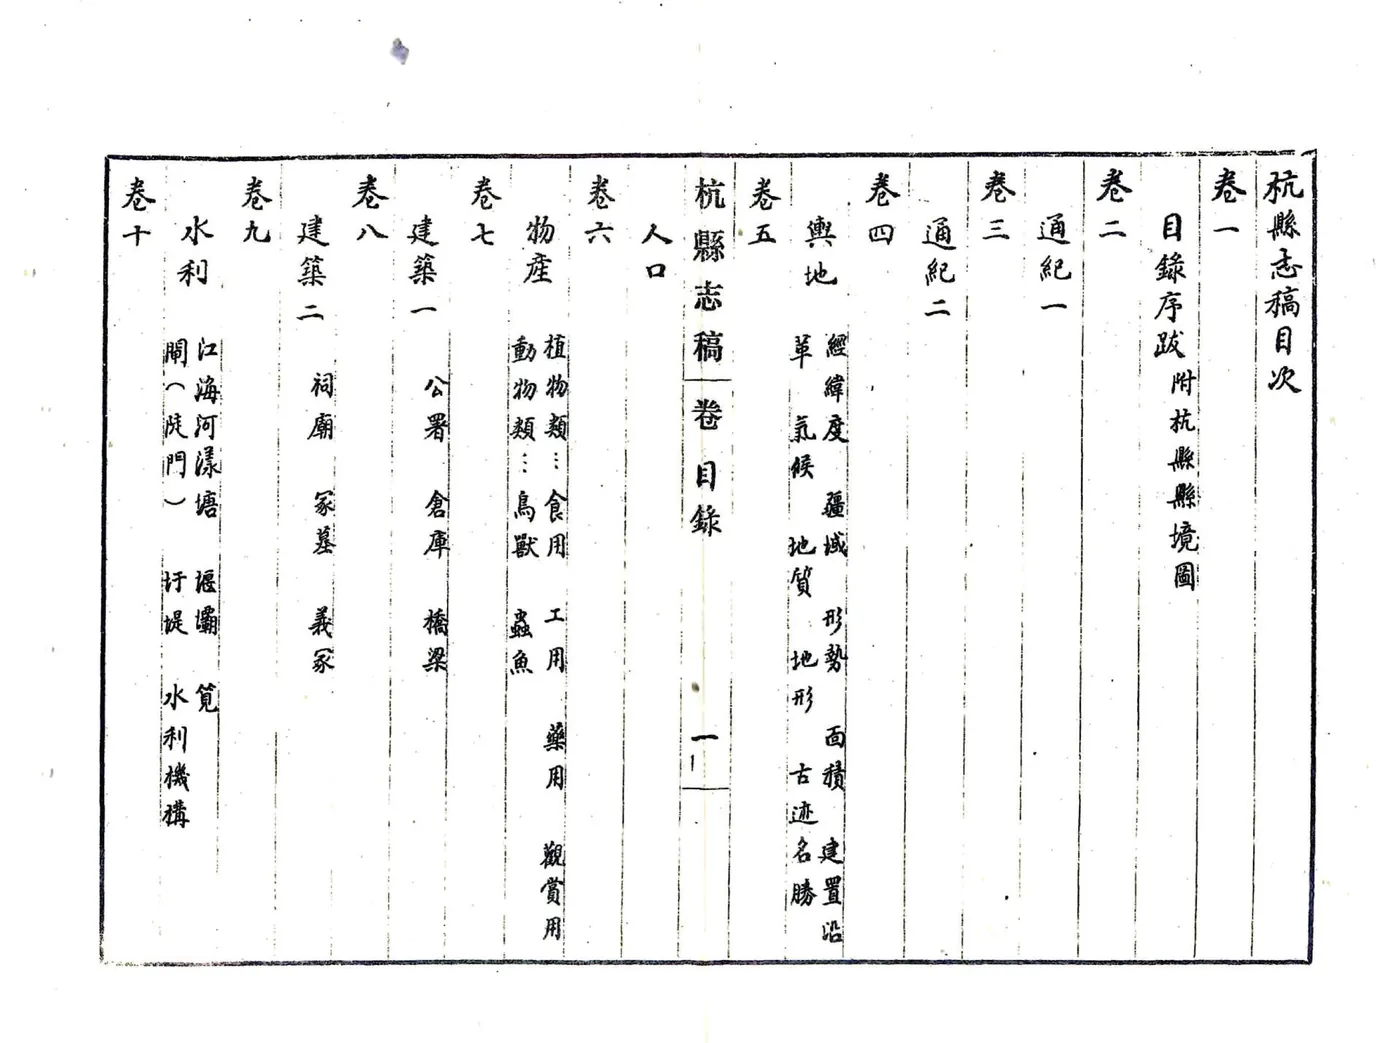 杭縣志稿目次
卷一
目錄序跋 附杭縣縣境圖
卷二
通紀一
卷三
通紀二
卷四
輿地 經緯度 疆域 形勢 面積 建置沿
革 氣候 地質 地形 古迹名勝
卷五
杭縣志稿 卷 目錄 一
人口
卷六
物産 植物類…食用 工用 藥用 觀賞用
動物類…鳥獸 蟲魚
卷七
建築一 公署 倉庫 橋梁
卷八
建築二 祠廟 冢墓 義冢
卷九
水利 江海河漾塘 堰壩 筧
閘(陡門) 圩堤 水利機構
卷十